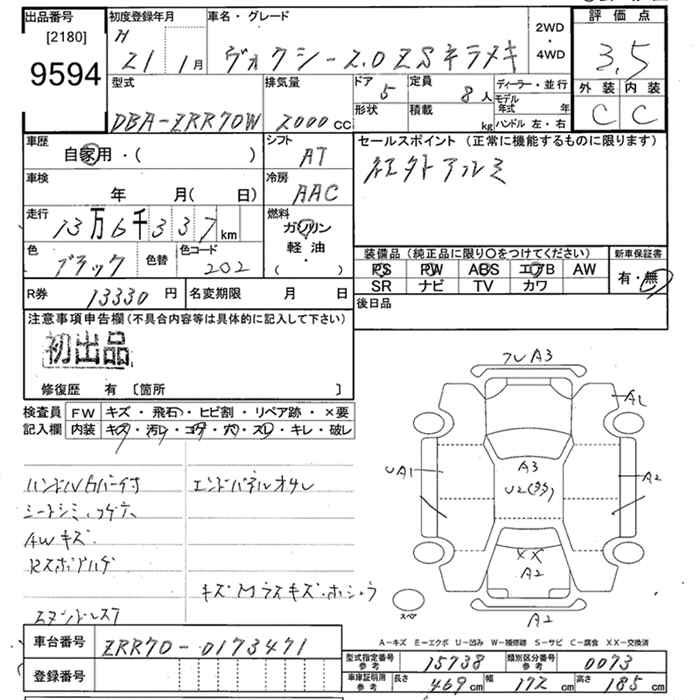 出品番号
[2180]
9594
初度登録年月
H
21 1月
車名・グレード
ヴォクシー 2.0 ZSキラメキ
2WD
・
4WD
評価点
3.5
外装 内装
C C
型式
DBA-ZRR70W
排気量
2000 cc
ドア
5
定員
8人
形状
積載
kg
ディーラー・並行
モデル年式 年
ハンドル 左・右
車歴
自家用・( )
シフト
AT
セールスポイント (正常に機能するものに限ります)
社外アルミ
車検
年 月( 日)
冷房
AAC
走行
13万6千337km
燃料
ガソリン
軽・油
( )
色
ブラック
色替
色コード
202
装備品 (純正品に限り○をつけてください)
PS PW ABS エアB AW
SR ナビ TV カワ
新車保証書
有・無
R券 13330円
名変期限 月 日
後日品
注意事項申告欄(不具合内容等は具体的に記入して下さい)
初出品
修復歴 有 〔箇所 〕
検査員記入欄
FW キズ・飛石・ヒビ割・リペア跡・×要
内装 キズ・汚レ・コゲ・穴・スレ・キレ・破レ
フレA3
A1
UA1
A3
U2(多)
A2
XX
A2
スペア
A2
シートシミ,コゲ穴
AWキズ
エンドパネルオサレ
A-キズ E-エクボ U-凹み W-補修跡 S-サビ C-腐食 XX-交換済
車台番号
ZRR70-0173471
登録番号
型式指定番号 参考 15738
類別区分番号 参考 0073
車庫証明用 参考 長さ 469cm 幅 172cm 高さ 185cm